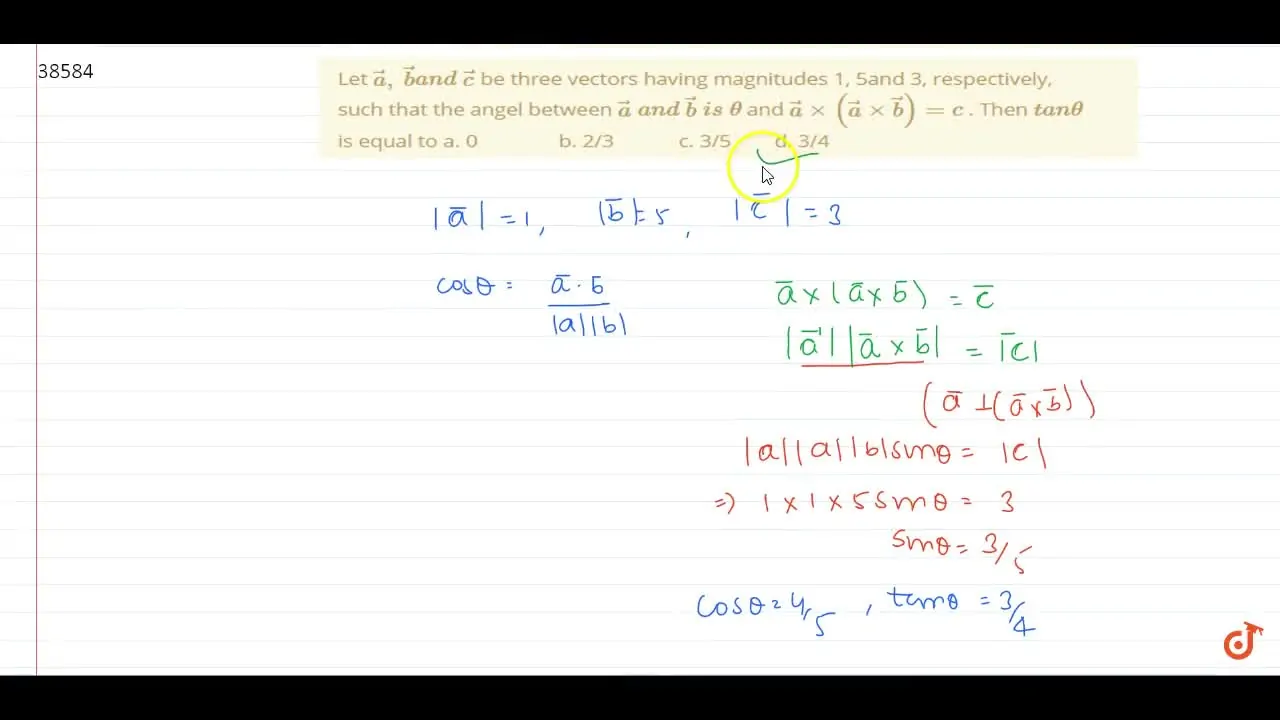 38584
Let $\vec{a}$, $\vec{b}$and $\vec{c}$ be three vectors having magnitudes 1, 5and 3, respectively,
such that the angel between $\vec{a}$ and $\vec{b}$ is θ and $\vec{a}$ × ($\vec{a}$ × $\vec{b}$) = c . Then tanθ
is equal to a. 0 b. 2/3 c. 3/5 d. 3/4
|a̅| = 1, |b̅| = 5, |c̅| = 3
cosθ = a̅ · b̅ / |a||b|
a̅ × (a̅ × b̅) = c̅
|a̅| |a̅ × b̅| = |c̅|
(a̅ ⊥ (a̅ × b̅))
|a||a||b|sinθ = |c|
=> 1 × 1 × 5 sinθ = 3
sinθ = 3/5
cosθ = 4/5 , tanθ = 3/4